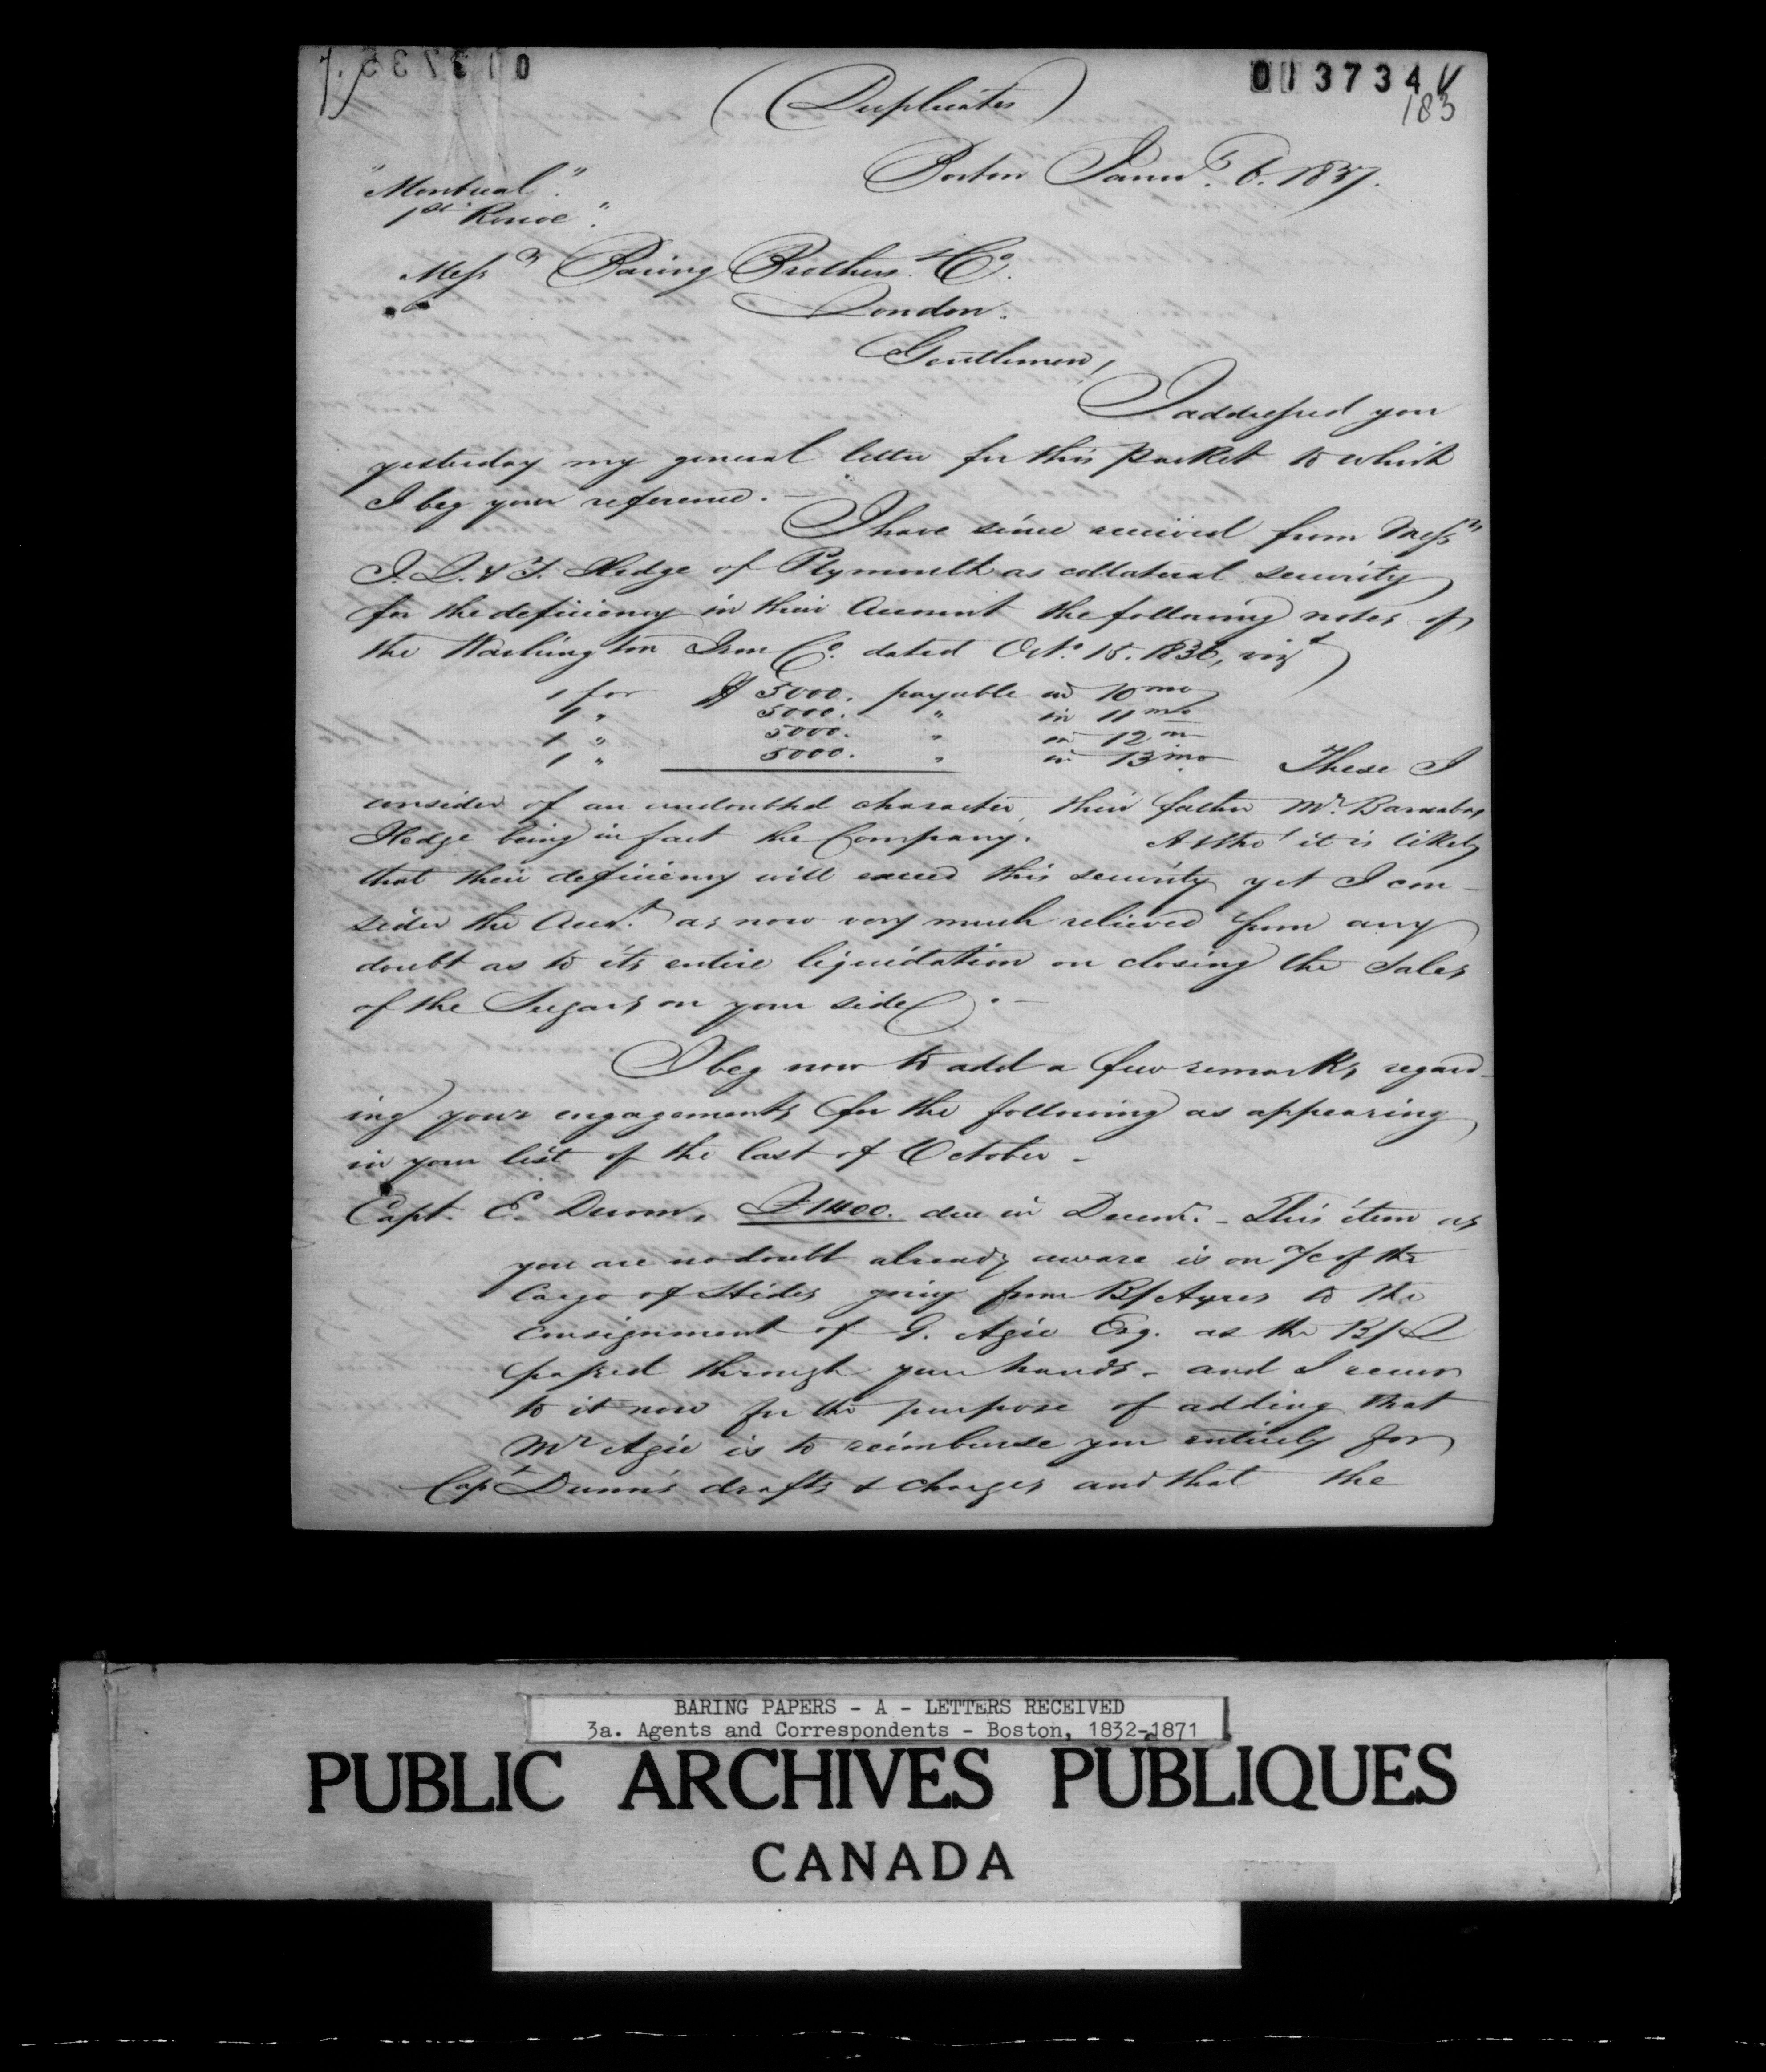 013734
183
(Duplicate)
Boston Janu.y 6. 1837.
"Montreal".
1st "Roscoe".
Messrs Baring Brothers & Co.
London.
Gentlemen,
I addressed you
yesterday my general letter for this packet to which
I beg your reference. —
I have since received from Messrs
I. L. & T. Hedge of Plymouth as collateral security
for the deficiency in their Account the following notes of
the Washington Iron Co. dated Oct. 15. 1836, vizt
1 for $ 5000. payable in 10 mo
1 " 5000. " in 11 mo
1 " 5000. " in 12 m
1 " 5000. " in 13 mo These I
consider of an undoubted character, their father Mr. Barnabas
Hedge being in fact the Company. Altho' it is likely
that their deficiency will exceed this security yet I con-
sider the Acct. as now very much relieved from any
doubt as to its entire liquidation on closing the sales
of the Sugars on your side. —
I beg now to add a few remarks, regard-
ing your engagements for the following as appearing
in your list of the last of October -
Capt. E. Dunn, £1400. due in Decemr. - This item as
you are no doubt already aware is on a/c of the
Cargo of Hides going from B/Ayres to the
consignment of G. Agie Esq. as the B/L
passed through your hands - and I recur
to it now for the purpose of adding that
Mr Agie is to reimburse you entirely for
Capt Dunn's drafts & charges and that the
BARING PAPERS - A - LETTERS RECEIVED
3a. Agents and Correspondents - Boston, 1832-1871
PUBLIC ARCHIVES PUBLIQUES
CANADA